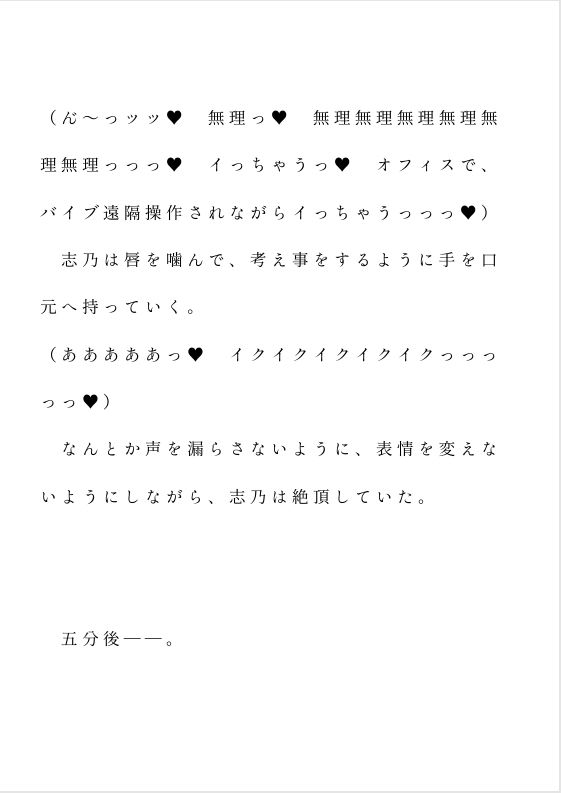 （ん゛～っッッ♥　無理っ♥　無理無理無理無理無
理無理っっっ♥　イっちゃうっ♥　オフィスで、
バイブ遠隔操作されながらイっちゃうっっっ♥）
　志乃は唇を噛んで、考え事をするように手を口
元へ持っていく。
（あああああっ♥　イクイクイクイクイクっっっ
っっ♥）
　なんとか声を漏らさないように、表情を変えな
いようにしながら、志乃は絶頂していた。
　五分後――。